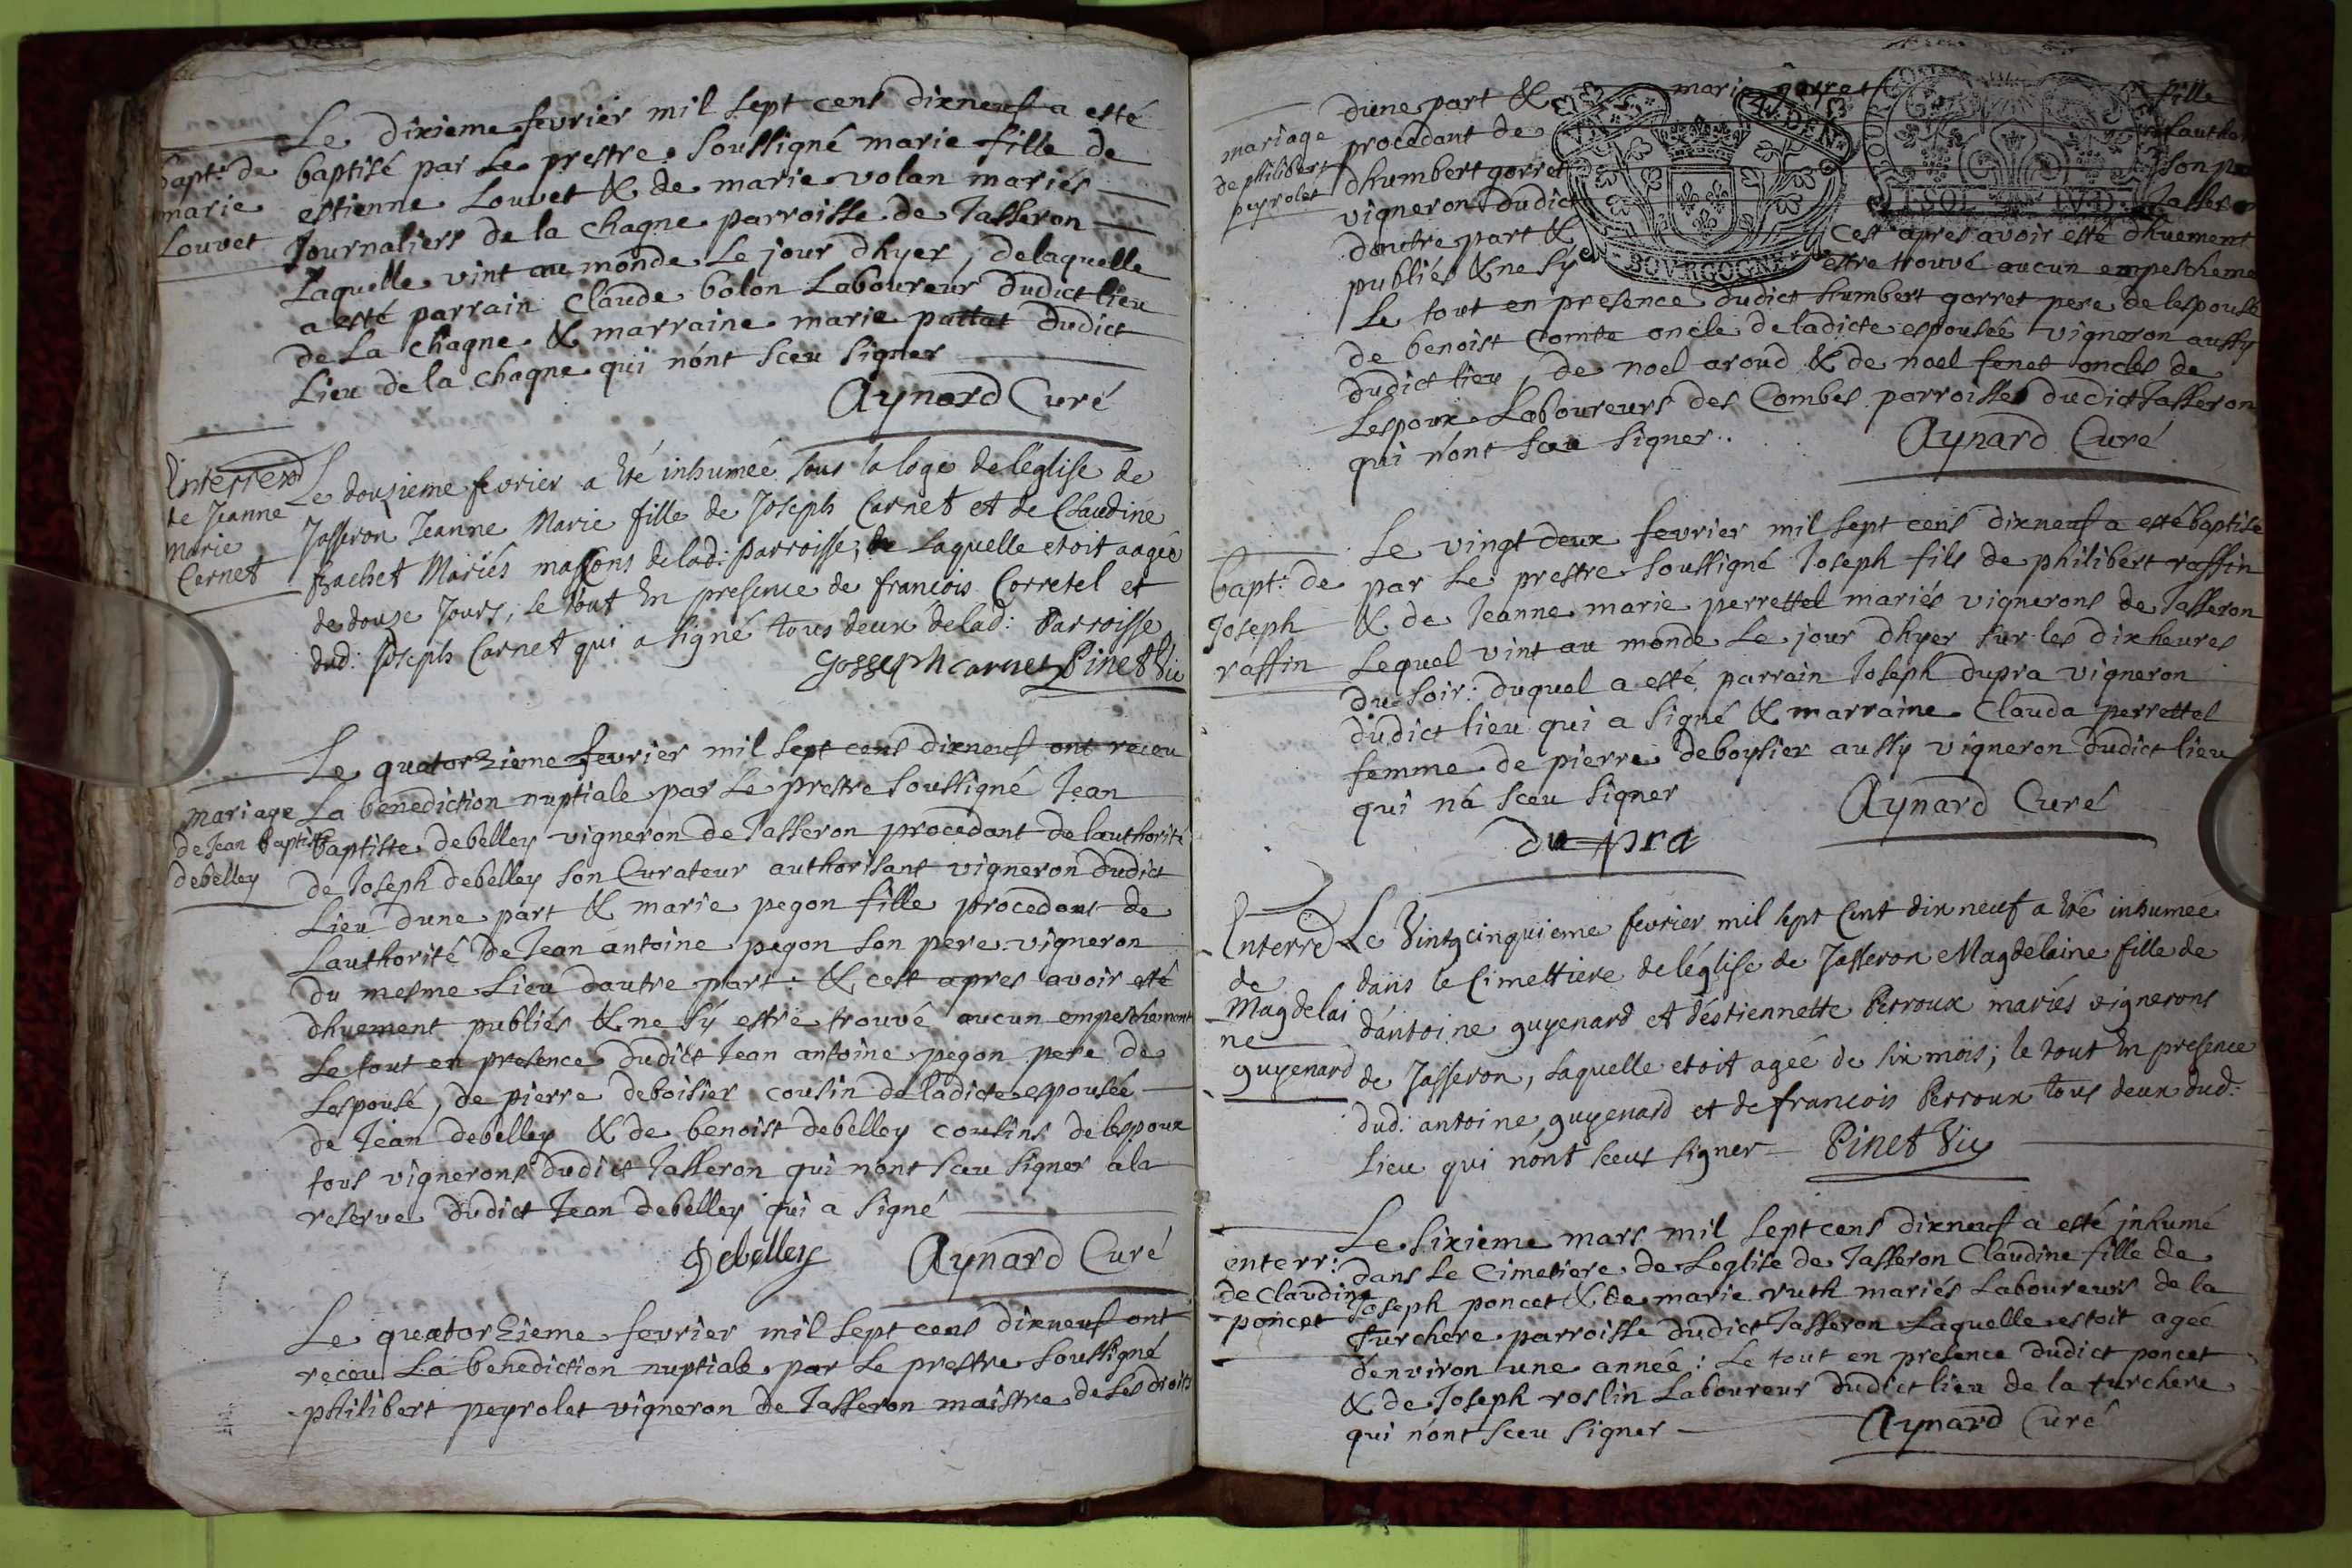 Le dixieme fevrier mil sept cens dixneuf a esté
bapt: de
marie
Louvet
baptisé par Le prestre soussigné marie fille de
estienne Louvet & de marie volan mariés
Journaliers de la chagne parroisse de Jasseron
Laquelle vint au monde Le jour dhyer, delaquelle
a esté parrain Claude bolon Laboureur dudict lieu
de La chagne & marraine marie puttat dudict
Lieu de la chagne qui nónt sceu signer
Aynard Curé
Enterrem
de Jeanne
Marie
Carnet
Le douzieme fevrier a été inhumeé sous la loge de léglise de
Jasseron Jeanne Marie fille de Joseph Carnet et de Claudine
frachet Mariés massons delad: parroisse; laquelle etoit aageé
de douze Jours; le tout En presence de francois Corretel et
dud: Joseph Carnet qui a signé tous deux delad: Parroisse
Josseph carnet Pinet Vic
Le quatorzieme fevrier mil sept cens dixneuf ont receu
mariage
de Jean baptiste
debelley
La benediction nuptiale par Le prestre soussigné Jean
baptiste debelley vigneron de Jasseron procedant de lauthorité
de Joseph debelley son Curateur authorisant vigneron dudict
Lieu dune part & marie pegon fille procedant de
Lauthorité de Jean antoine pegon son pere vigneron
du mesme Lieu dautre part: & cest apres avoir esté
dhuement publiés & ne sÿ estre trouvé aucun empeschement
Le tout en presence dudict Jean antoine pegon pere de
Lespousé, de pierre deboisier cousin de ladicte espouseé
de Jean debelley & de benoist debelley cousins de lespoux
tous vignerons dudict Jasseron qui nont sceu signer a la
reserve dudict Jean debelley qui a signé
Debelley Aynard Curé
Le quatorzieme fevrier mil sept cens dixneuf ont
receu La benediction nuptiale par Le prestre soussigné
philibert peyrolet vigneron de Jasseron maistre de ses droits
mariage
de philibert
peyrolet
dune part & marie gorret fille
procedant de lautho
dhumbert gorret son pe
vigneron dudict Jasseron
dautre part & cest apres avoir esté dhuement
publiés & ne sy estre trouvé aucun empescheme
BOVRGOGNE
Le tout en presence dudict humbert gorret pere de lespousé
de benoist Comte oncle de ladicte espouseé vigneron aussy
dudict lieu, de noel aroud & de noel fenet oncles de
Lespoux Laboureurs des Combes parroisse dudict Jasseron
qui nónt sceu signer..
Aynard Curé
Le vingt deux fevrier mil sept cens dixneuf a esté baptisé
bapt: de
Joseph
raffin
par Le prestre soussigné Joseph fils de philibert raffin
& de Jeanne marie perrettel mariés vignerons de Jasseron
Lequel vint au monde Le jour dhyer sur les dix heures
du soir: duquel a esté parrain Joseph dupra vigneron
dudict lieu qui a signé & marraine Clauda perrettel
femme de pierre deboysier aussy vigneron dudict lieu
qui ná sceu signer
Aynard Curé
du pra
Enterred
de
Magdelai
ne
guyenard
Le Vintgcinquieme fevrier mil sept Cent dix neuf a été inhumeé
dans le Cimettiere de léglise de Jasseron Magdelaine fille de
dántoine guyenard et déstiennette Perroux mariés vignerons
de Jasseron, laquelle etoit ageé de six mois; le tout En presence
dud: antoine guyenard et de francois Perroux tous deux dud:
Lieu qui nónt sceus signer Pinet Vic
Le sixieme mars mil sept cens dixneuf a esté inhumé
enterr:
de Claudine
poncet
dans Le Cimetiere de Leglise de Jasseron Claudine fille de
Joseph poncet & de marie ruth mariés Laboureurs de la
turchere parroisse dudict Jasseron Laquelle estoit ageé
denviron une anneé: Le tout en presence dudict poncet
& de Joseph roslin Laboureur dudict lieu de la turchere
qui nónt sceu signer
Aynard Curé